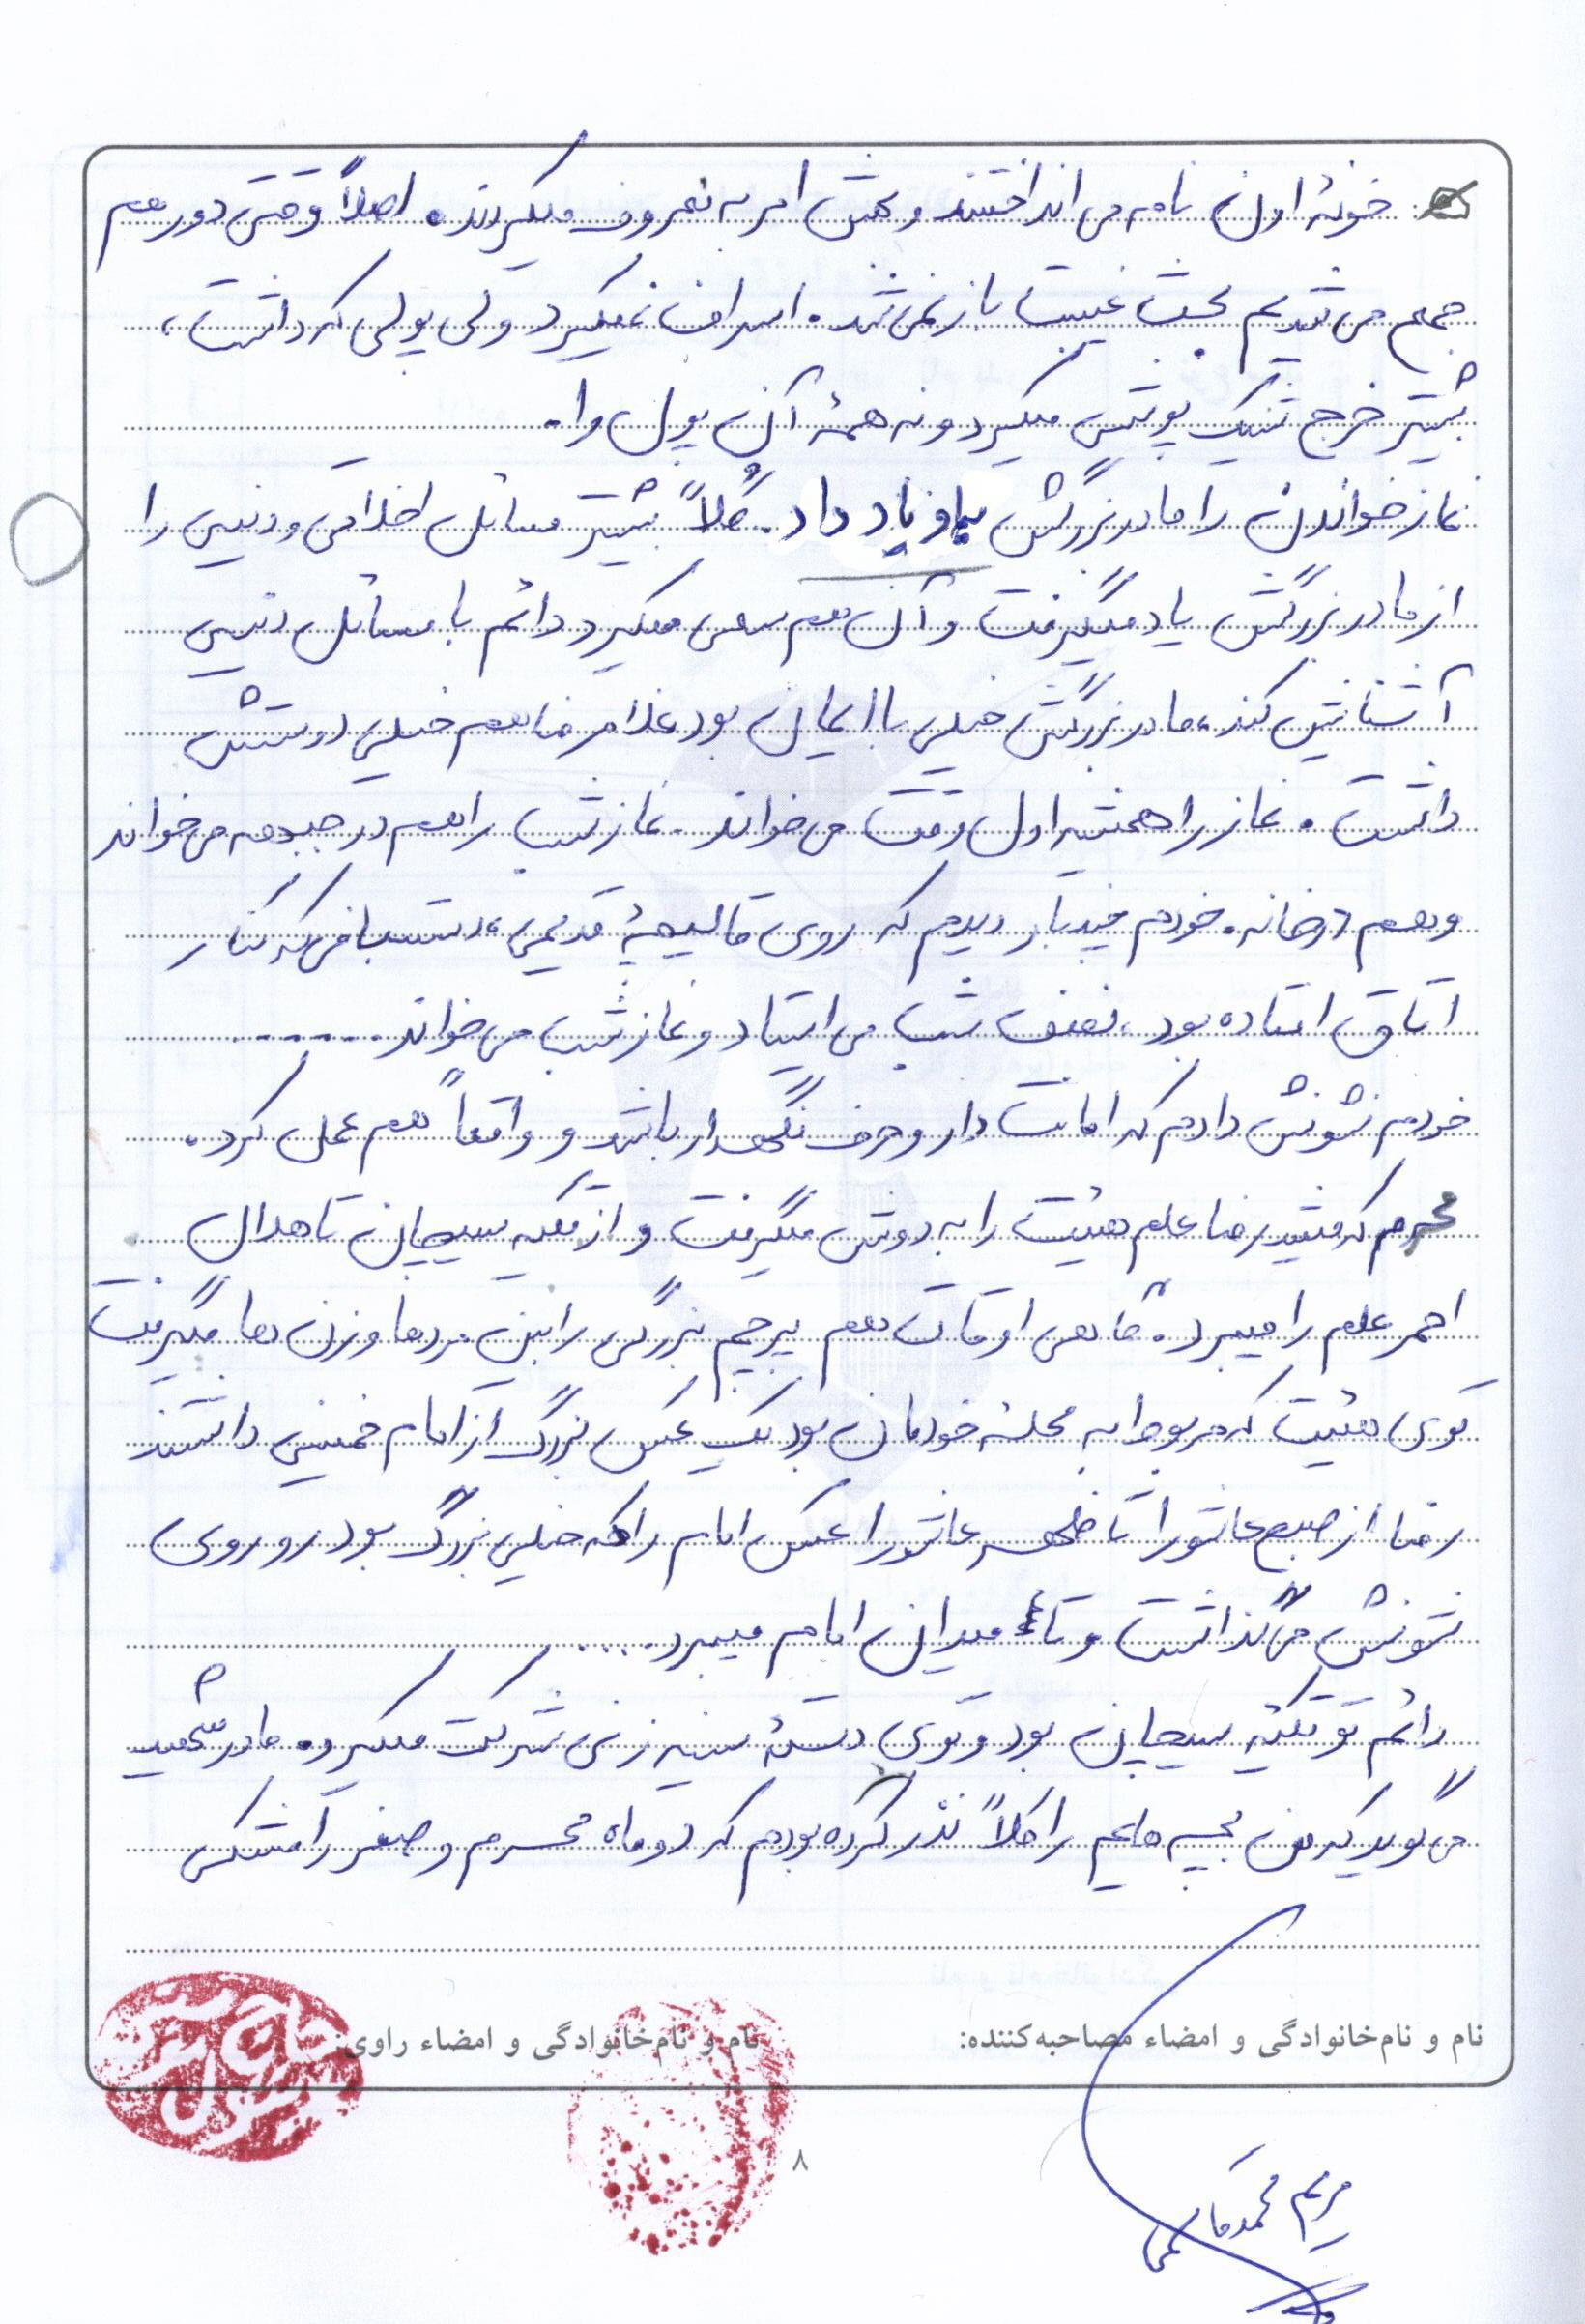 خونهٔ اون نامه می انداختند و بهش امر به معروف میکردند. اصلاً وقتی دور هم
جمع می شدیم بحث غیبت باز نمی شد. اسراف نمیکرد ولی پولی که داشت،
بیشتر خرج شیک پوشی میکرد و نه همهٔ آن پول را.
نماز خواندن را مادربزرگش به او یاد داد. کُلاً بیشتر مسائل اخلاقی و دینی را
از مادربزرگش یاد میگرفت و آن هم سعی میکرد دائم با مسائل دینی
آشنایش کند، مادربزرگش خیلی با ایمان بود غلامرضا هم خیلی دوستش
داشت. نماز را همیشه اول وقت می خواند. نماز شب را هم در جبهه می خواند
و هم در خانه. خودم چند بار دیدم که روی قالیچهٔ قدیمی، دستبافی که کنار
اتاق افتاده بود، نصف شب می ایستاد و نماز شب می خواند.......
خودم نشونش دادم که امانت دار و حرف نگهدار باشد و واقعاً هم عمل کرد.
محرم که میشد رضا علم هیئت را به دوش میگرفت و از تکیه سیچان تا هلال
احمر علم را میبرد. گاهی اوقات هم پرچم بزرگی را بین مردها و زن ها میگرفت
توی هیئت که مربوط به محله خودمان بود یک عکس بزرگ از امام خمینی داشتند
رضا از صبح عاشورا تا ظهر عاشورا عکس امام را که خیلی بزرگ بود رو روی
شونش می گذاشت و تا میدان امام میبرد.....
دائم تو تکیه سیچان بود و توی دستهٔ سینه زنی شرکت میکرد. مادر شهید
می گوید که من بچه هایم را کلاً نذر کرده بودم که دو ماه محرم و صفر را مشکی
نام و نام‌خانوادگی و امضاء مصاحبه‌کننده:
نام و نام‌خانوادگی و امضاء راوی:
مریم محمدقاسمی
۸